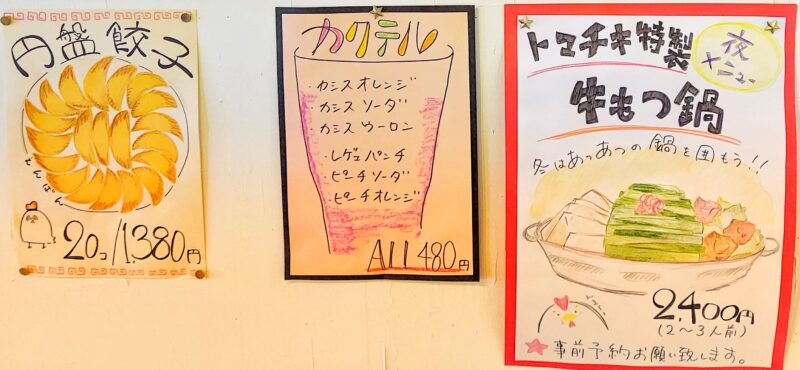 円盤餃子
えんばん
20コ/1,380円
カクテル
・カシスオレンジ
・カシスソーダ
・カシスウーロン
・レゲエパンチ
・ピーチソーダ
・ピーチオレンジ
ALL 480円
トマチキ特製
夜メニュー
牛もつ鍋
冬はあつあつの鍋を囲もう!!
2,400円
(2〜3人前)
★事前予約お願い致します。